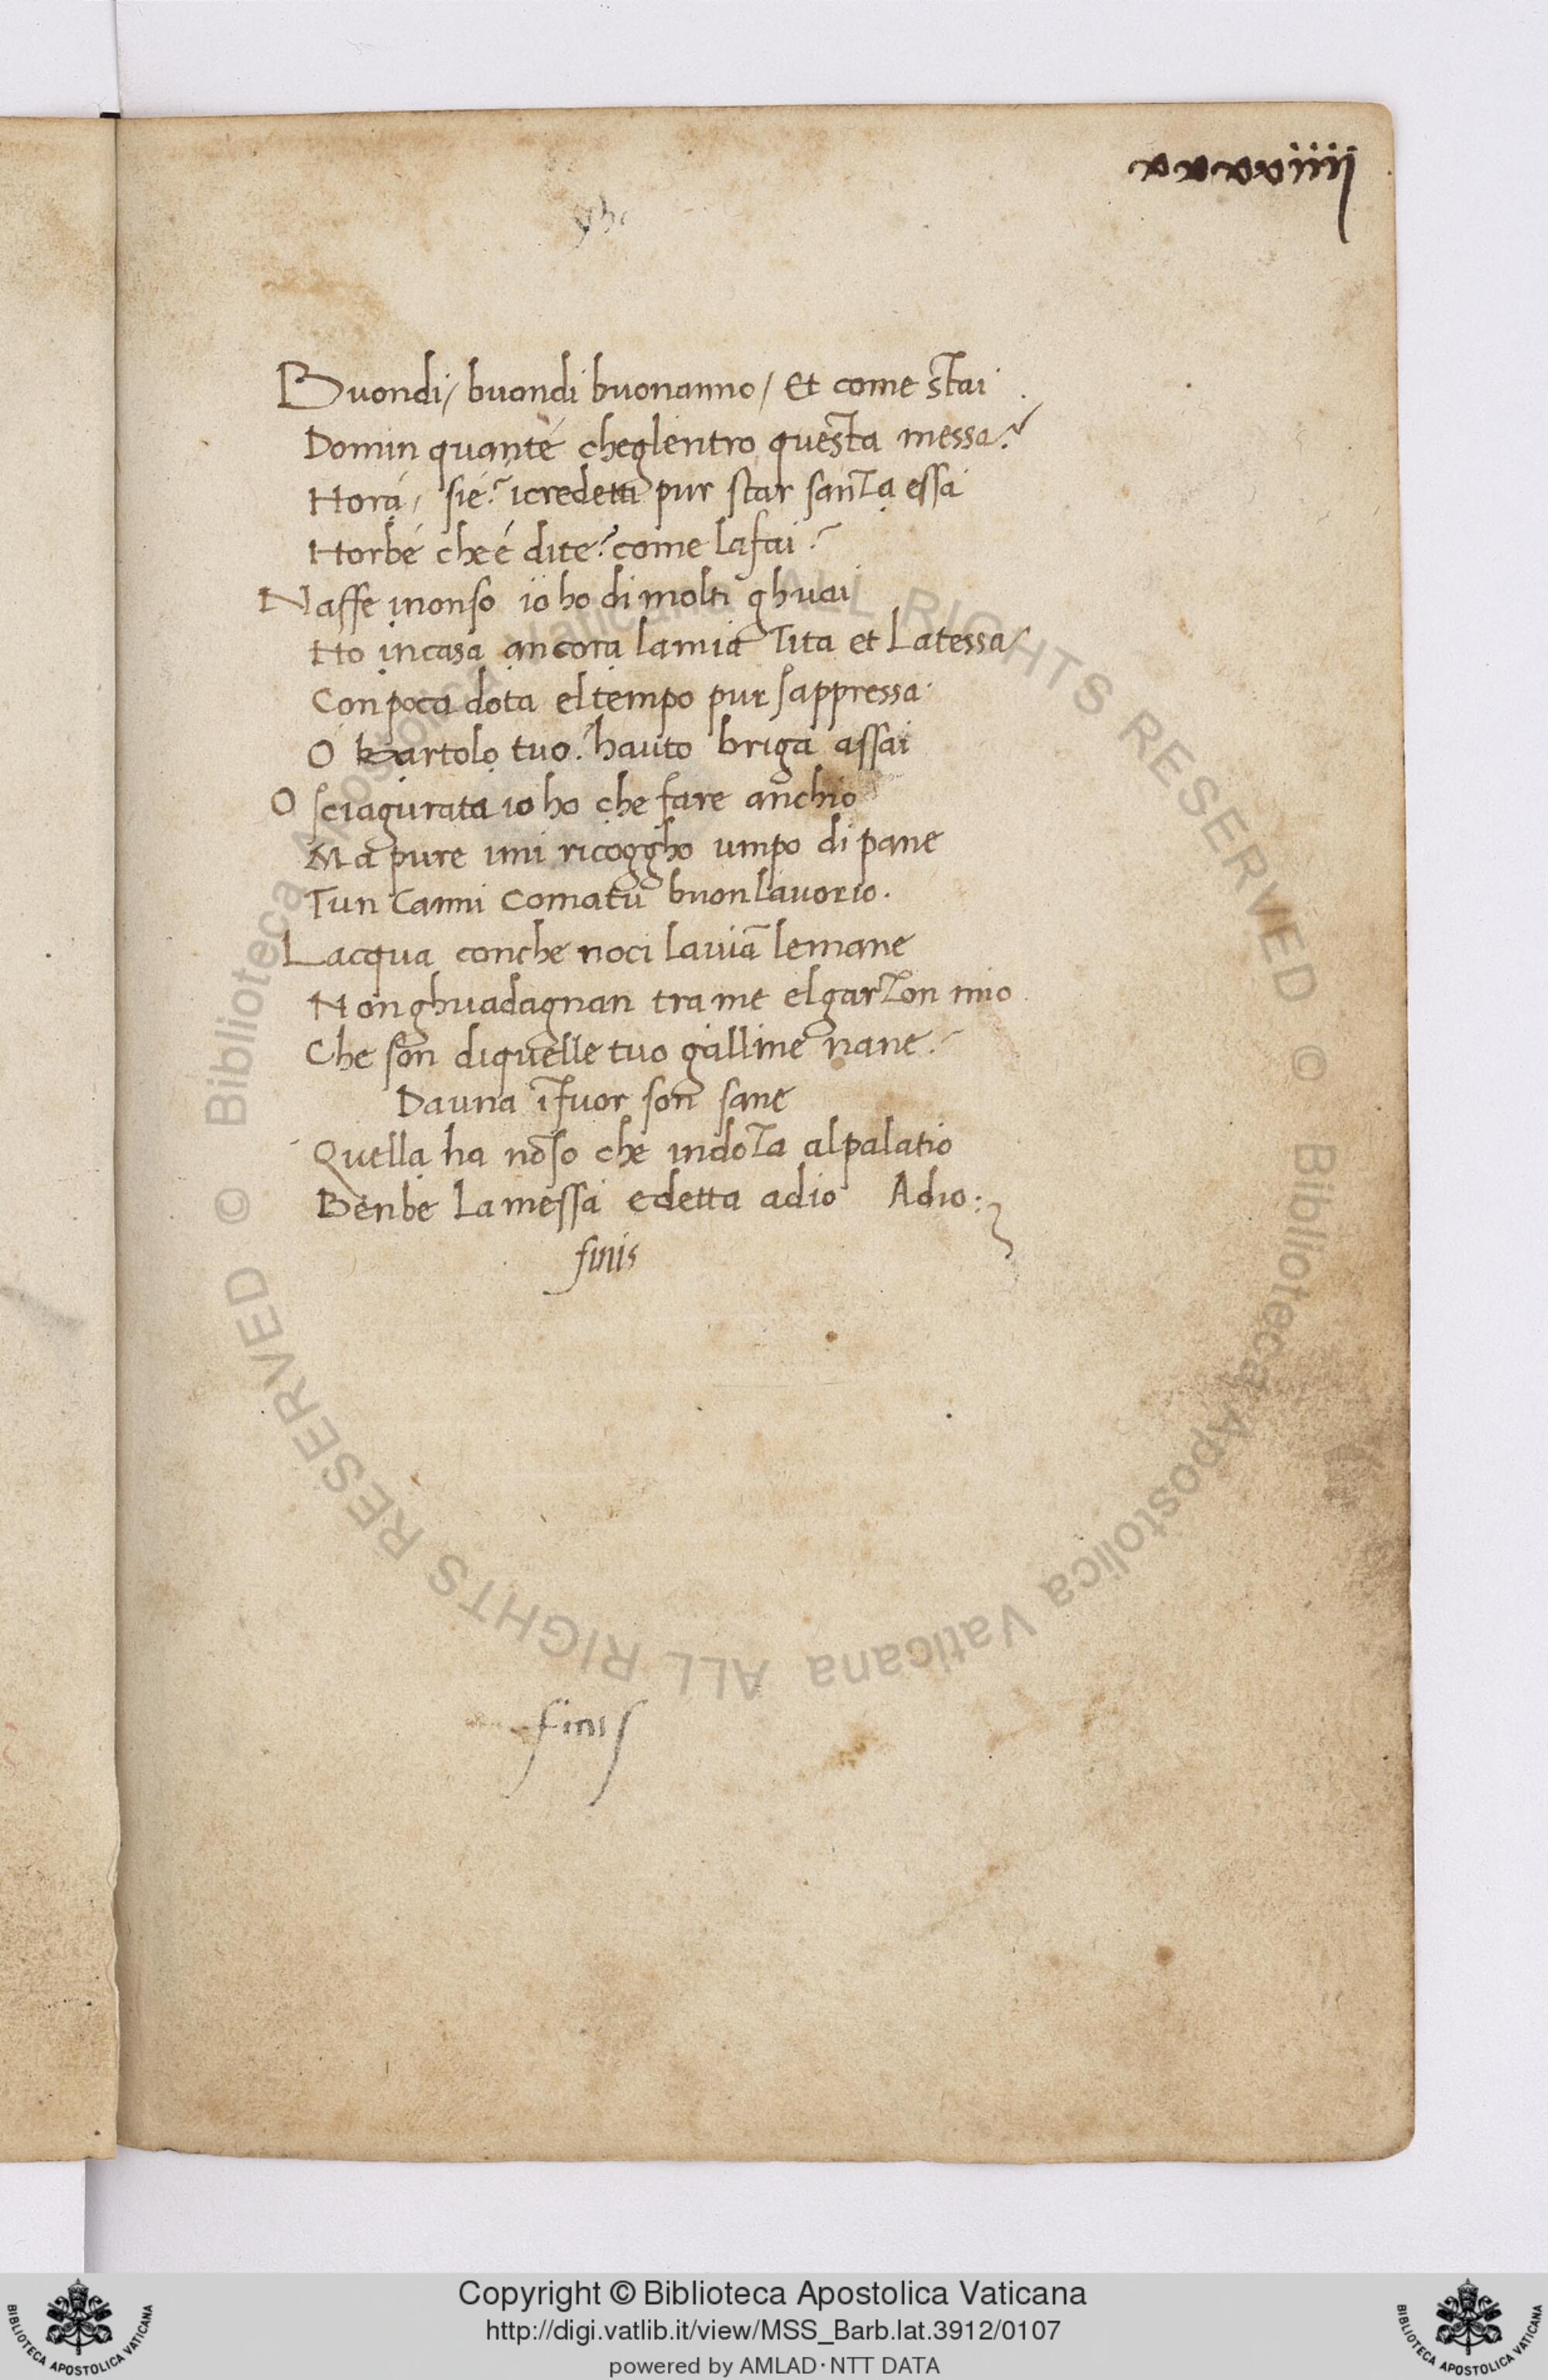 xxxxviiij
Buondi / buondi buonanno / Et come stai .
Domin quante cheglentro questa messa?
Hora / sie? icredetti pur star sanza essa
Horbé cheé dite? come lafai?
Naffe inonso io ho di molti ghuai
Ho incasa ancora lamia Tita et Latessa
Con poca dota el tempo pur sappressa.
O bartolo tuo? hauto briga assai
O sciagurata io ho che fare anchio
Ma pure imi ricoggho umpo di pane
Tun Canni Comatu buon lauorio.
Lacqua conche noci lauiā lemane
Non ghuadagnan tra me elgarzon mio
Che son diquelle tuo galline nane.
Dauna ifuor son sane
Quella ha nōso che indoza alpalatio
Benbe La messa edetta adio Adio :
finis
finis
© Biblioteca Apostolica Vaticana ALL RIGHTS RESERVED © Biblioteca Apostolica Vaticana ALL RIGHTS RESERVED
Copyright © Biblioteca Apostolica Vaticana
http://digi.vatlib.it/view/MSS_Barb.lat.3912/0107
powered by AMLAD·NTT DATA
BIBLIOTECA APOSTOLICA VATICANA
BIBLIOTECA APOSTOLICA VATICANA